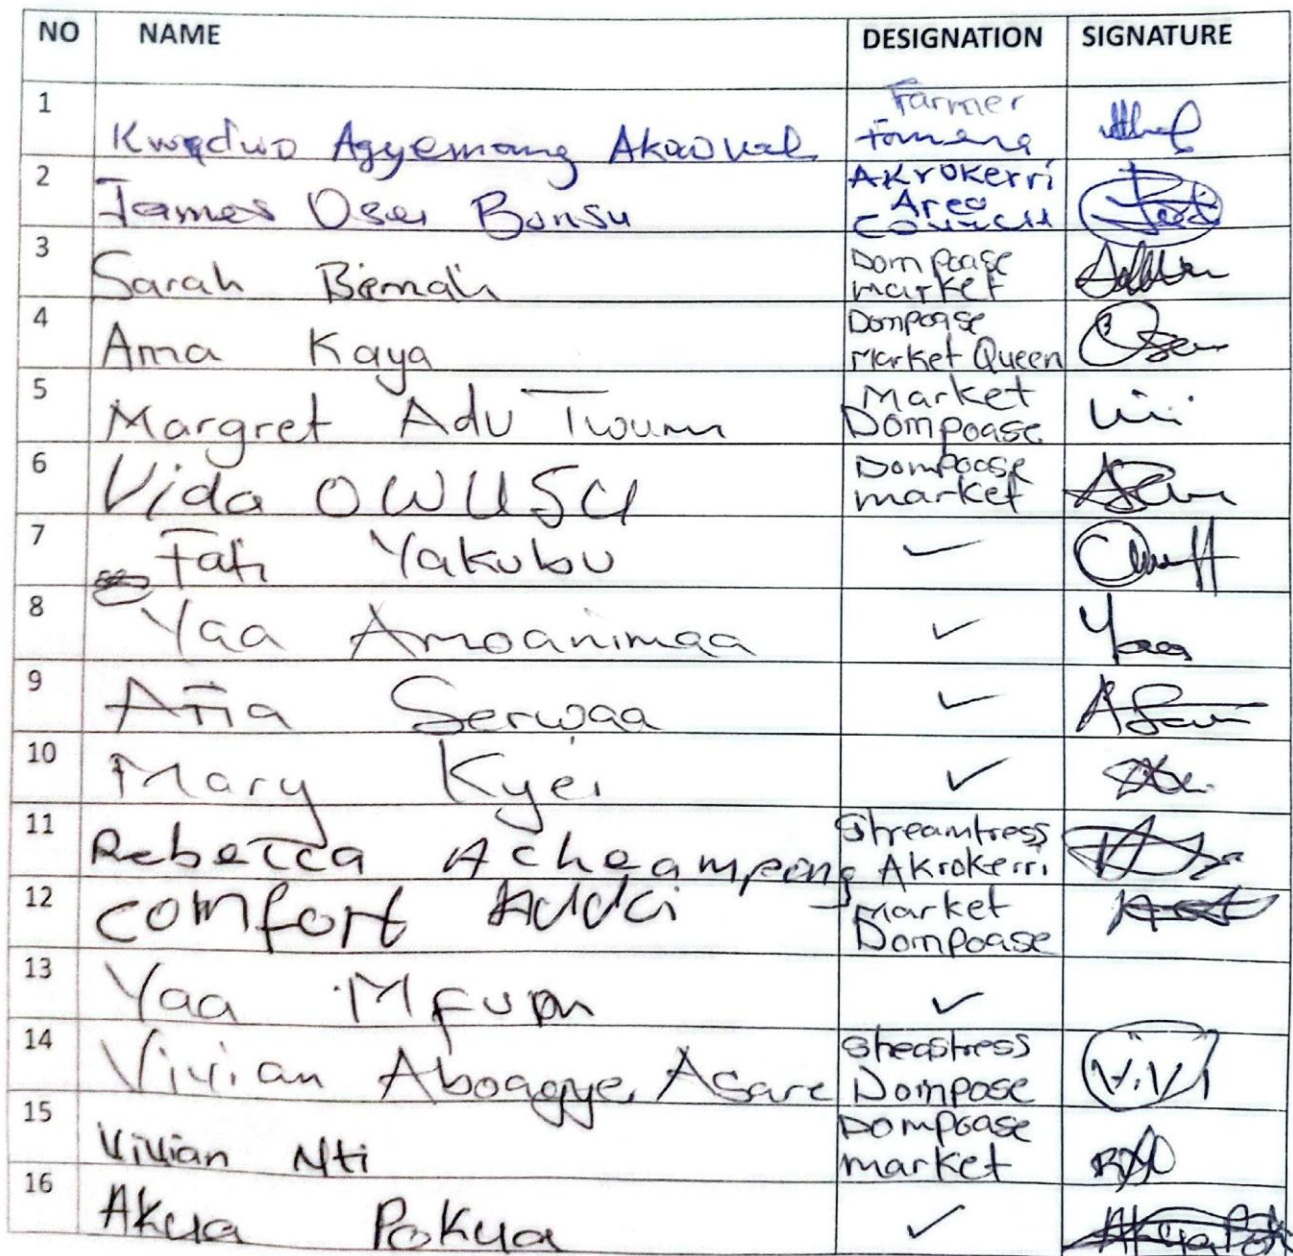 NO NAME DESIGNATION SIGNATURE
1 Kwadwo Agyemang Farmer Fomena
2 James Osei Bonsu Akrokerri Area Council
3 Sarah Dompoase market
4 Ama Kaya Dompoase Market Queen
5 Margret Adu Twum Market Dompoase
6 Vida OWUSU Dompoase market
7 Fati Yakubu ✓
8 Yaa Amoanimaa ✓ Yaa
9 Afia Serwaa ✓
10 Mary Kyei ✓
11 Rebecca Acheampong Streamtress Akrokerri
12 comfort Addai Market Dompoase
13 Yaa ✓
14 Vivian Aboagye Asare Steastress Dompose ViVi
15 Vivian Nti Dompoase market
16 Akua Pokua ✓